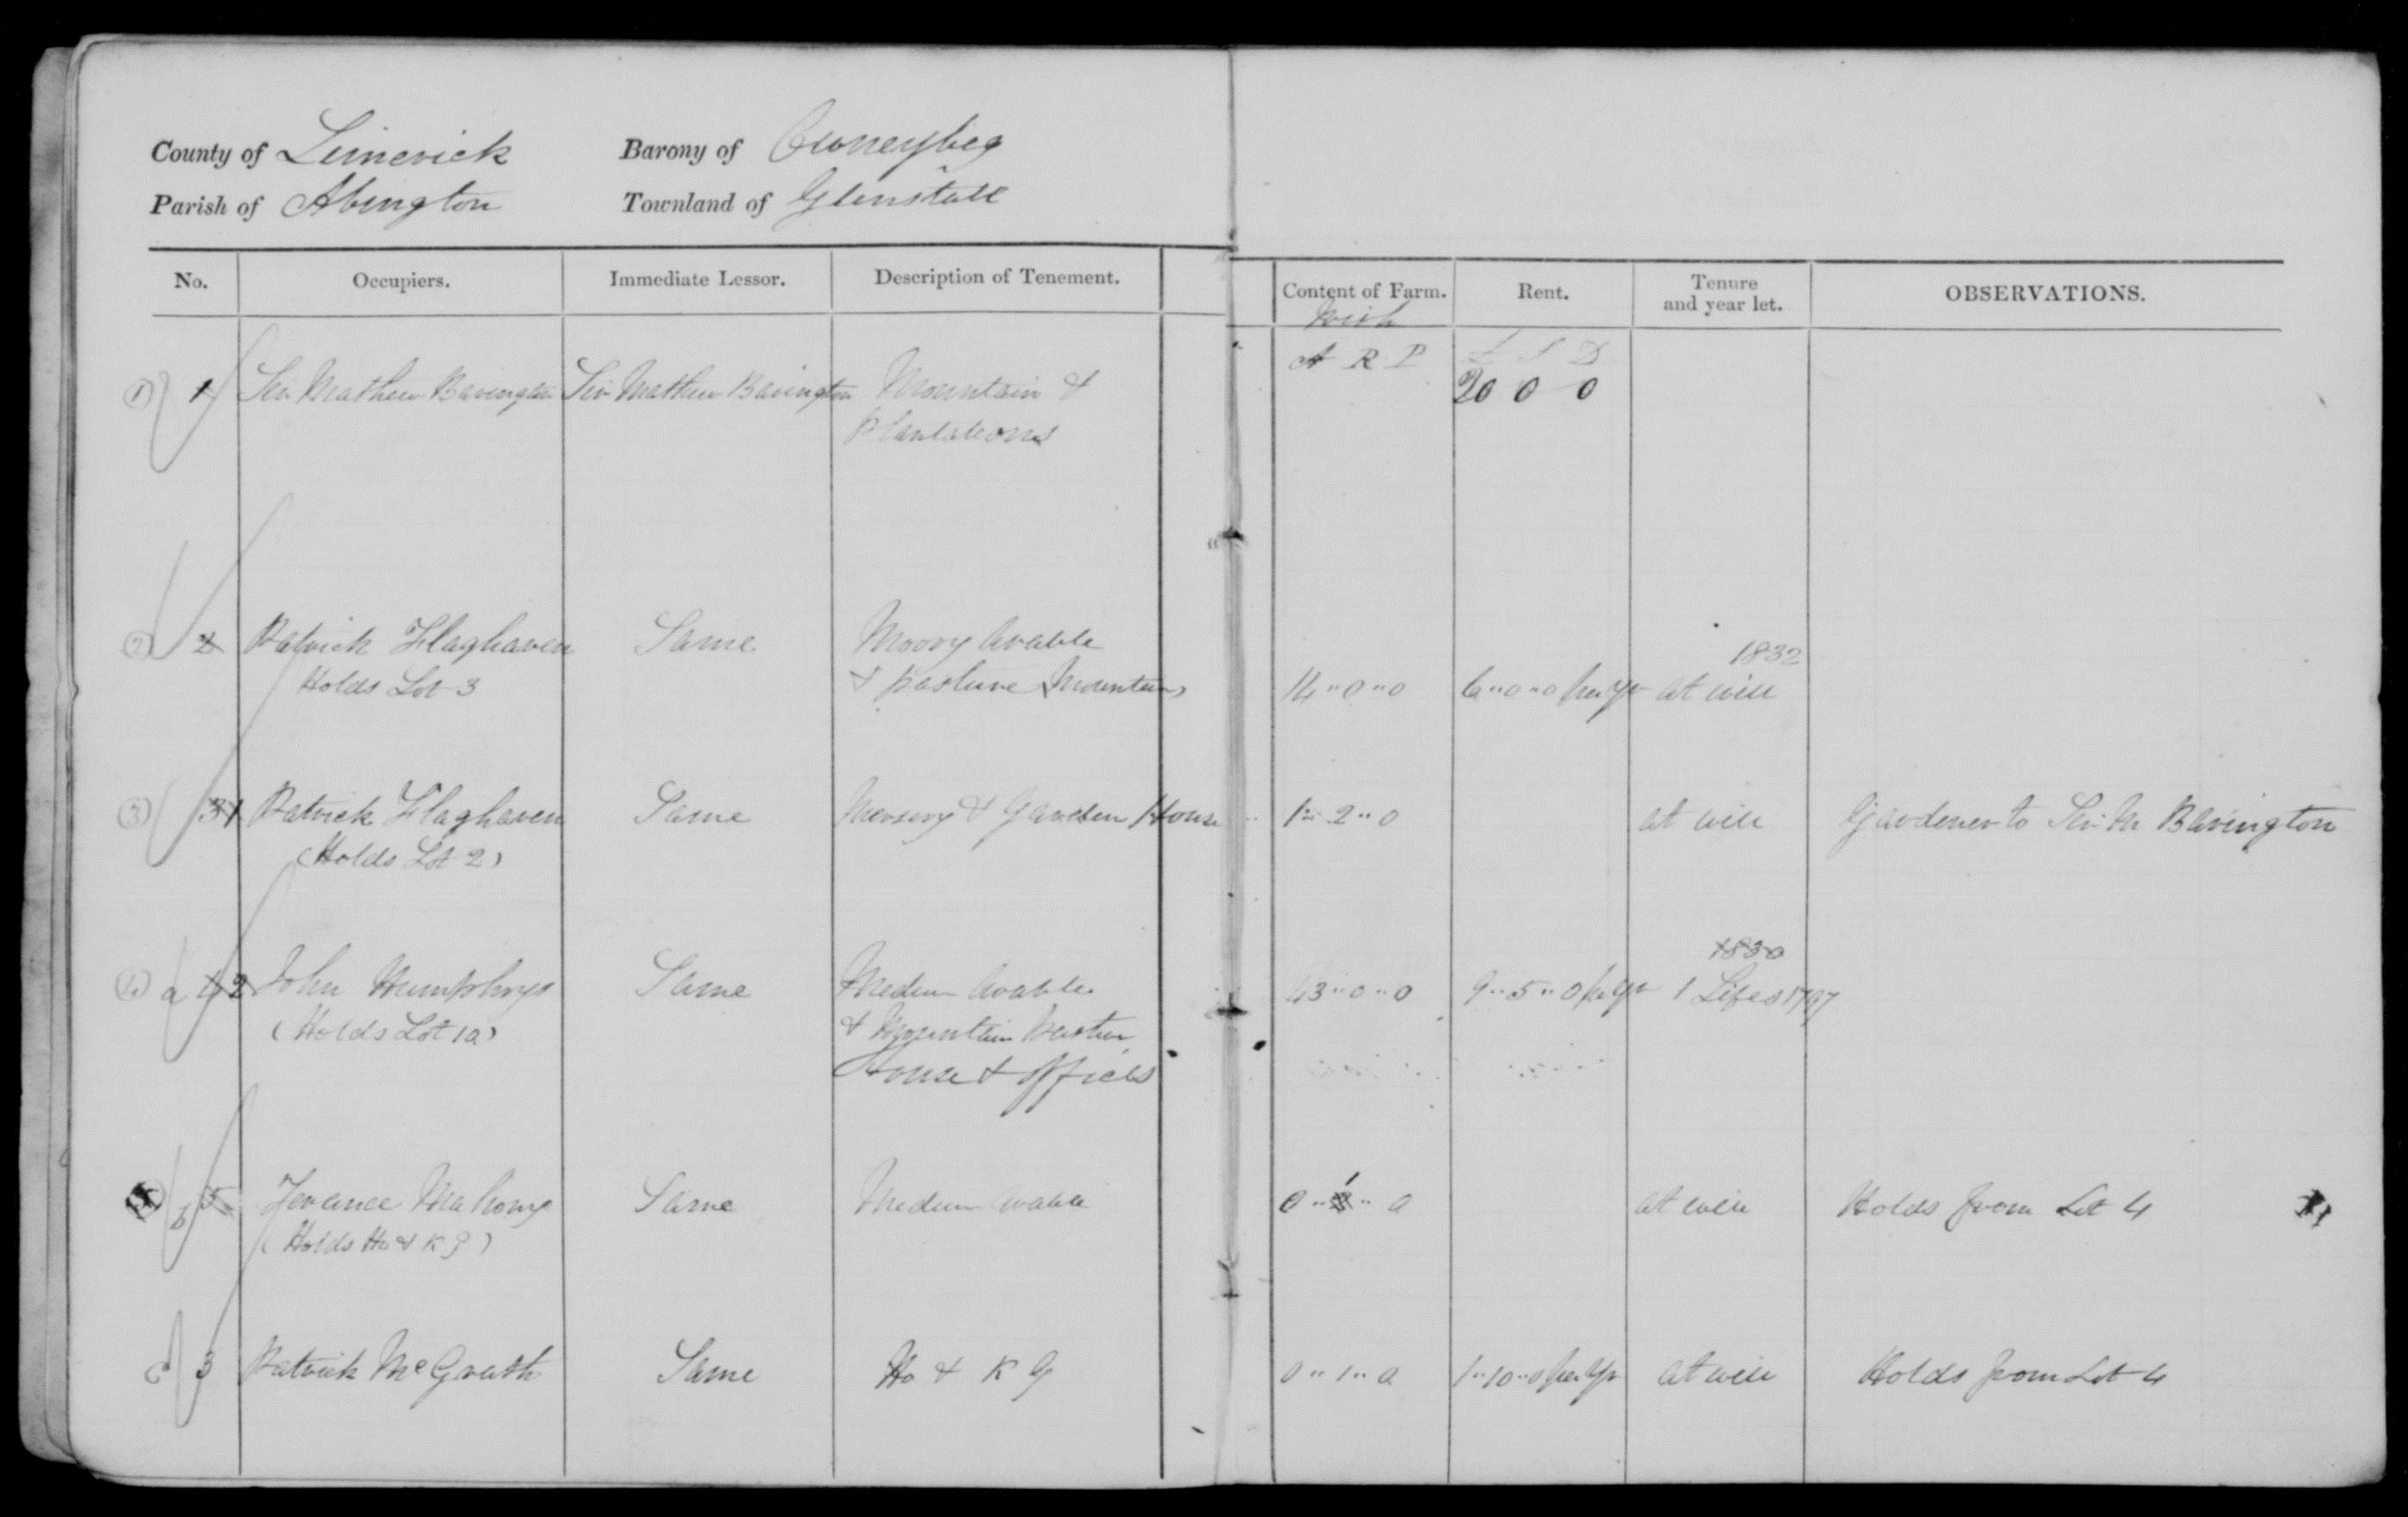 County of Limerick Barony of Owneybeg
Parish of Abington Townland of Glenstall
No. Occupiers. Immediate Lessor. Description of Tenement. Content of Farm. Rent. Tenure and year let. OBSERVATIONS.
Irish
A R P £ S D
① 1 Sir Mathew Barrington Sir Mathew Barrington Mountain & 20 0 0
Plantations
1832
② 2 Patrick Flaghaven Same Moory Arable
Holds Lot 3 & pasture Mountain 14"0"0 6"0"0 per yr at will
③ 3 1 Patrick Flaghaven Same Nursery & Garden House 1"2"0 at will Gardener to Sir M Barington
(Holds Lot 2)
1830
④ a 4 2 John Humphrys Same Medium Arable 43"0"0 9"5"0 per yr 1 Lifes 1797
(Holds Lot 1a) & Mountain Pasture
House & Offices
b 5 Terance Mahony Same Medium arable 0"1"0 at will Holds from Lot 4
(Holds Ho & K G)
c 3 Patrick McGrath Same Ho & K G 0"1"0 1"10"0 per yr at will Holds from Lot 4